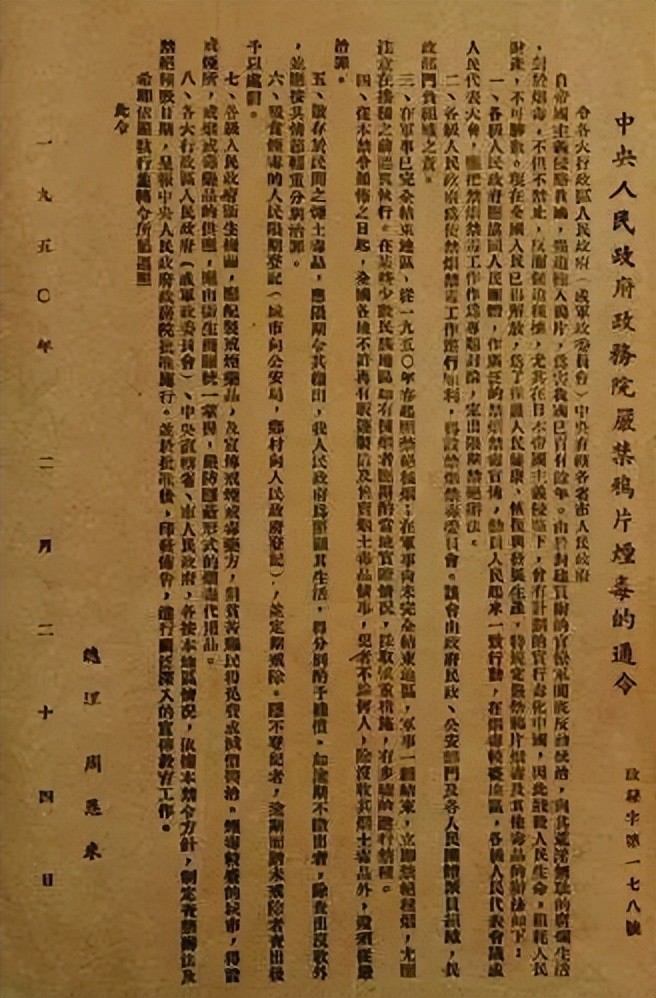 中央人民政府政務院嚴禁鴉片煙毒的通令
政秘字第一七八號
令各大行政區人民政府(或軍政委員會)中央直轄各省市人民政府
自帝國主義侵略我國,強迫輸入鴉片,爲害我國已百有餘年。由於封建買辦的官僚軍閥底反動統治,與其荒淫無恥的腐爛生活
,對於煙毒,不但不禁止,反而強迫種植,尤其在日本帝國主義侵略下,曾有計劃的實行毒化中國,因此戕殺人民生命,損耗人民
財產,不可勝數。現在全國人民已得解放,爲了保護人民健康、恢復與發展生產,特規定嚴禁鴉片煙毒及其他毒品的辦法如下:
一、各級人民政府應協同人民團體,作廣泛的禁煙禁毒宣傳,動員人民起來一致行動,在煙毒較盛地區,各級人民代表會議或
人民代表大會,應把禁煙禁毒工作作爲專題討論,定出限期禁絕辦法。
二、各級人民政府爲使禁煙禁毒工作進行順利,得設禁煙禁毒委員會。該會由政府民政、公安部門及各人民團體派員組織,民
政部門負組織之責。
三、在軍事已完全結束地區,從一九五〇年春起應禁絕種煙;在軍事尚未完全結束地區,軍事一經結束,立即禁絕種煙,尤應
注意在播種之前認眞執行。在某些少數民族地區如有種煙者應斟酌當地實際情況,採取愼重措施,有步驟的進行禁種。
四、從本禁令頒佈之日起,全國各地不許再有販運製造及售賣煙土毒品情事,犯者不論何人,除沒收其煙土毒品外,還須從嚴
治罪。
五、散存於民間之煙土毒品,應限期令其繳出,我人民政府爲照顧其生活,得分別酌予補償。如逾期不繳出者,除查出沒收外
,並應按其情節輕重分別治罪。
六、吸食煙毒的人民限期登記(城市向公安局,鄉村向人民政府登記),並定期戒除。隱不登記者,逾期而猶未戒除者查出後
予以處罰。
七、各級人民政府衛生機關,應配製戒煙藥品,及宣傳戒煙戒毒藥方,對貧苦癮民得免費或減價醫治。煙毒較盛的城市,得設
戒煙所,戒煙戒毒藥品的供應,應由衛生機關統一掌握,嚴防隱蔽形式的煙毒代用品。
八、各大行政區人民政府(或軍政委員會)、中央直轄省、市人民政府,各按本地區情況,依據本禁令方針,制定查禁辦法及
禁絕種吸日期,呈報中央人民政府政務院批准施行。並於批准後,印發佈告,進行廣泛深入的宣傳教育工作。
希即依照執行
此令
總理 周恩來
一九五〇年二月二十四日